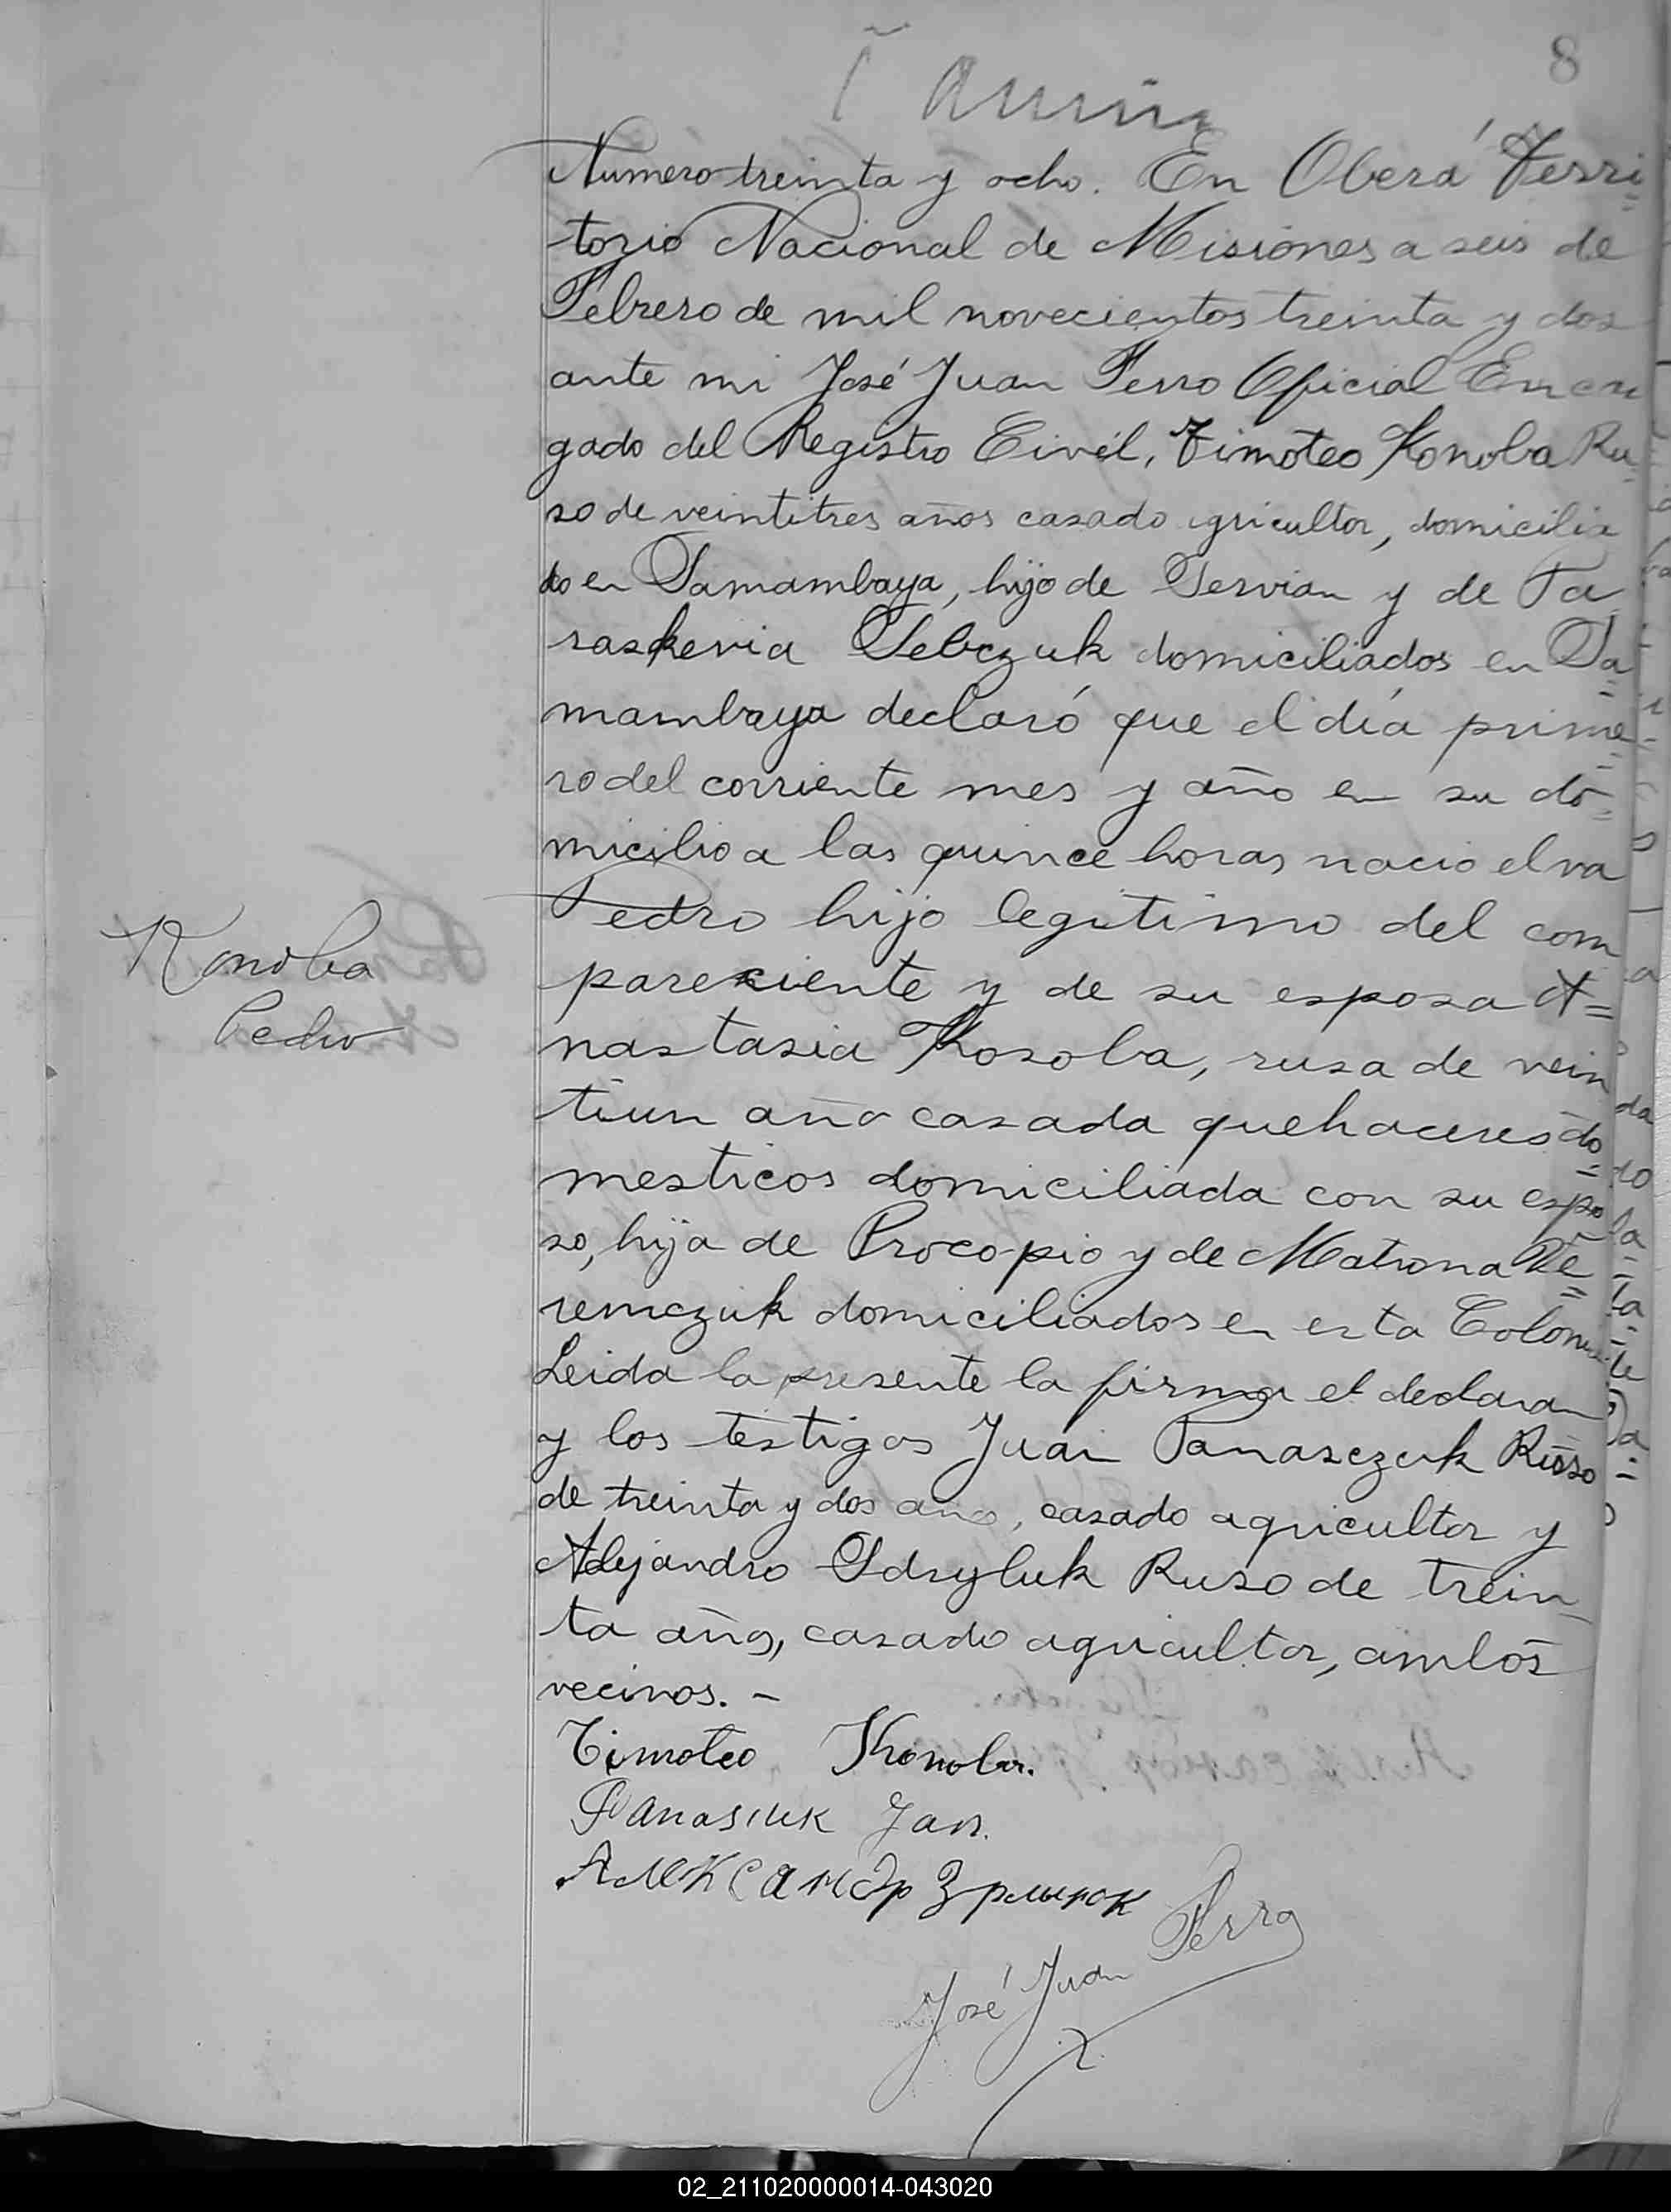 8
Numero treinta y ocho. En Oberá Terri
torio Nacional de Misiones a seis de
Febrero de mil novecientos treinta y dos
ante mi José Juan Ferro Oficial Encar
gado del Registro Civil, Timoteo Konoba Ru
so de veintitres años casado agricultor, domicilia
do en Samambaya, hijo de Servian y de Pa
raskevia Sebczuk domiciliados en Sa
mambaya declaró que el día prime
ro del corriente mes y año en su do
micilio a las quince horas nacio el va
Pedro hijo legitimo del com
pareciente y de su esposa A=
nastasia Kosoba, rusa de vein
tiun año casada quehaceres do
mesticos domiciliada con su espo
so, hija de Procopio y de Matrona De
remczuk domiciliados en esta Colonia
Leida la presente la firma el declaran
y los testigos Juan Panasczuk Ruso
de treinta y dos años, casado agricultor y
Alejandro Sdryluk Ruso de trein
ta años, casado agricultor, ambos
vecinos. –
Konoba
Pedro
Timoteo Konoba.
Panasiuk Jan.
Александр
José Juan Ferro
02_211020000014-043020